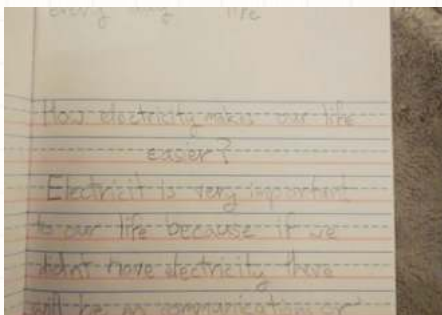 every day life
How electricity makes our life
easier?
Electricit is very important
to our life because if we
didnt have electricity there
will be no communication or